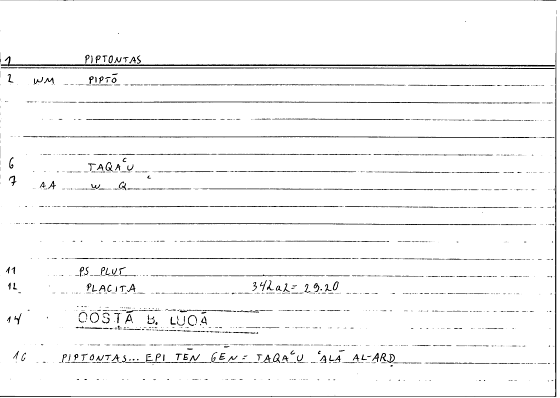 1 PIPTONTAS
2 WM PIPTŌ
6 TAQAᶜU
7 AA W Q ᶜ
11 PS PLUT
12 PLACITA 342a2 = 29.20
14 QOSTĀ B. LŪQĀ
16 PIPTONTAS... EPI TĒN GĒN = TAQAᶜU ᶜALĀ AL-ARḌ